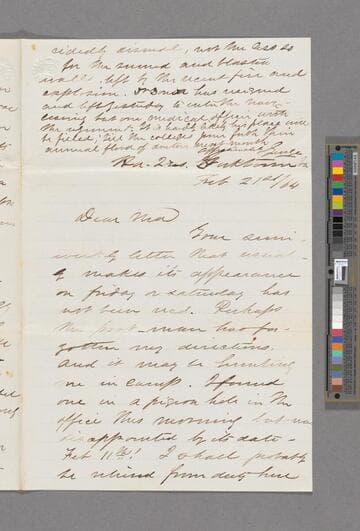 cidedly dismal, not the less so
for the ruined and blasted
walls left by the recent fire and
explosion. has resigned
and left yesterday to enter the Navy
leaving but one medical officer with
the regiment. It is hardly likely his place will
be filled, till the colleges pour forth their
annual flood of doctors next month
Affectionately
Hd. Qrs. Yorktown Va
Feb 21st/64
Dear Ma
Your semi-
weekly letter that usual-
ly makes its appearance
on friday or saturday has
not been rec'd. Perhaps
the post-man has for-
gotten my directions
and it may be hunting
me in camp. I found
one in a pigeon hole in the
office this morning but was
disappointed by its date -
Feb 11th! I shall probably
be relieved from duty here